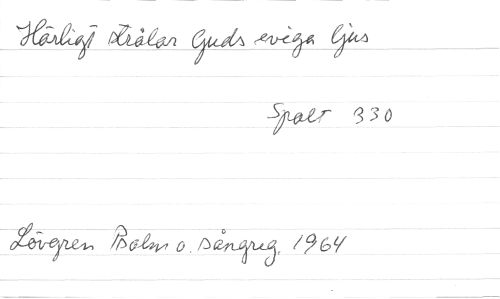 Härligt strålar Guds eviga ljus
Spalt 330
Lövgren Psalm o. sångreg. 1964